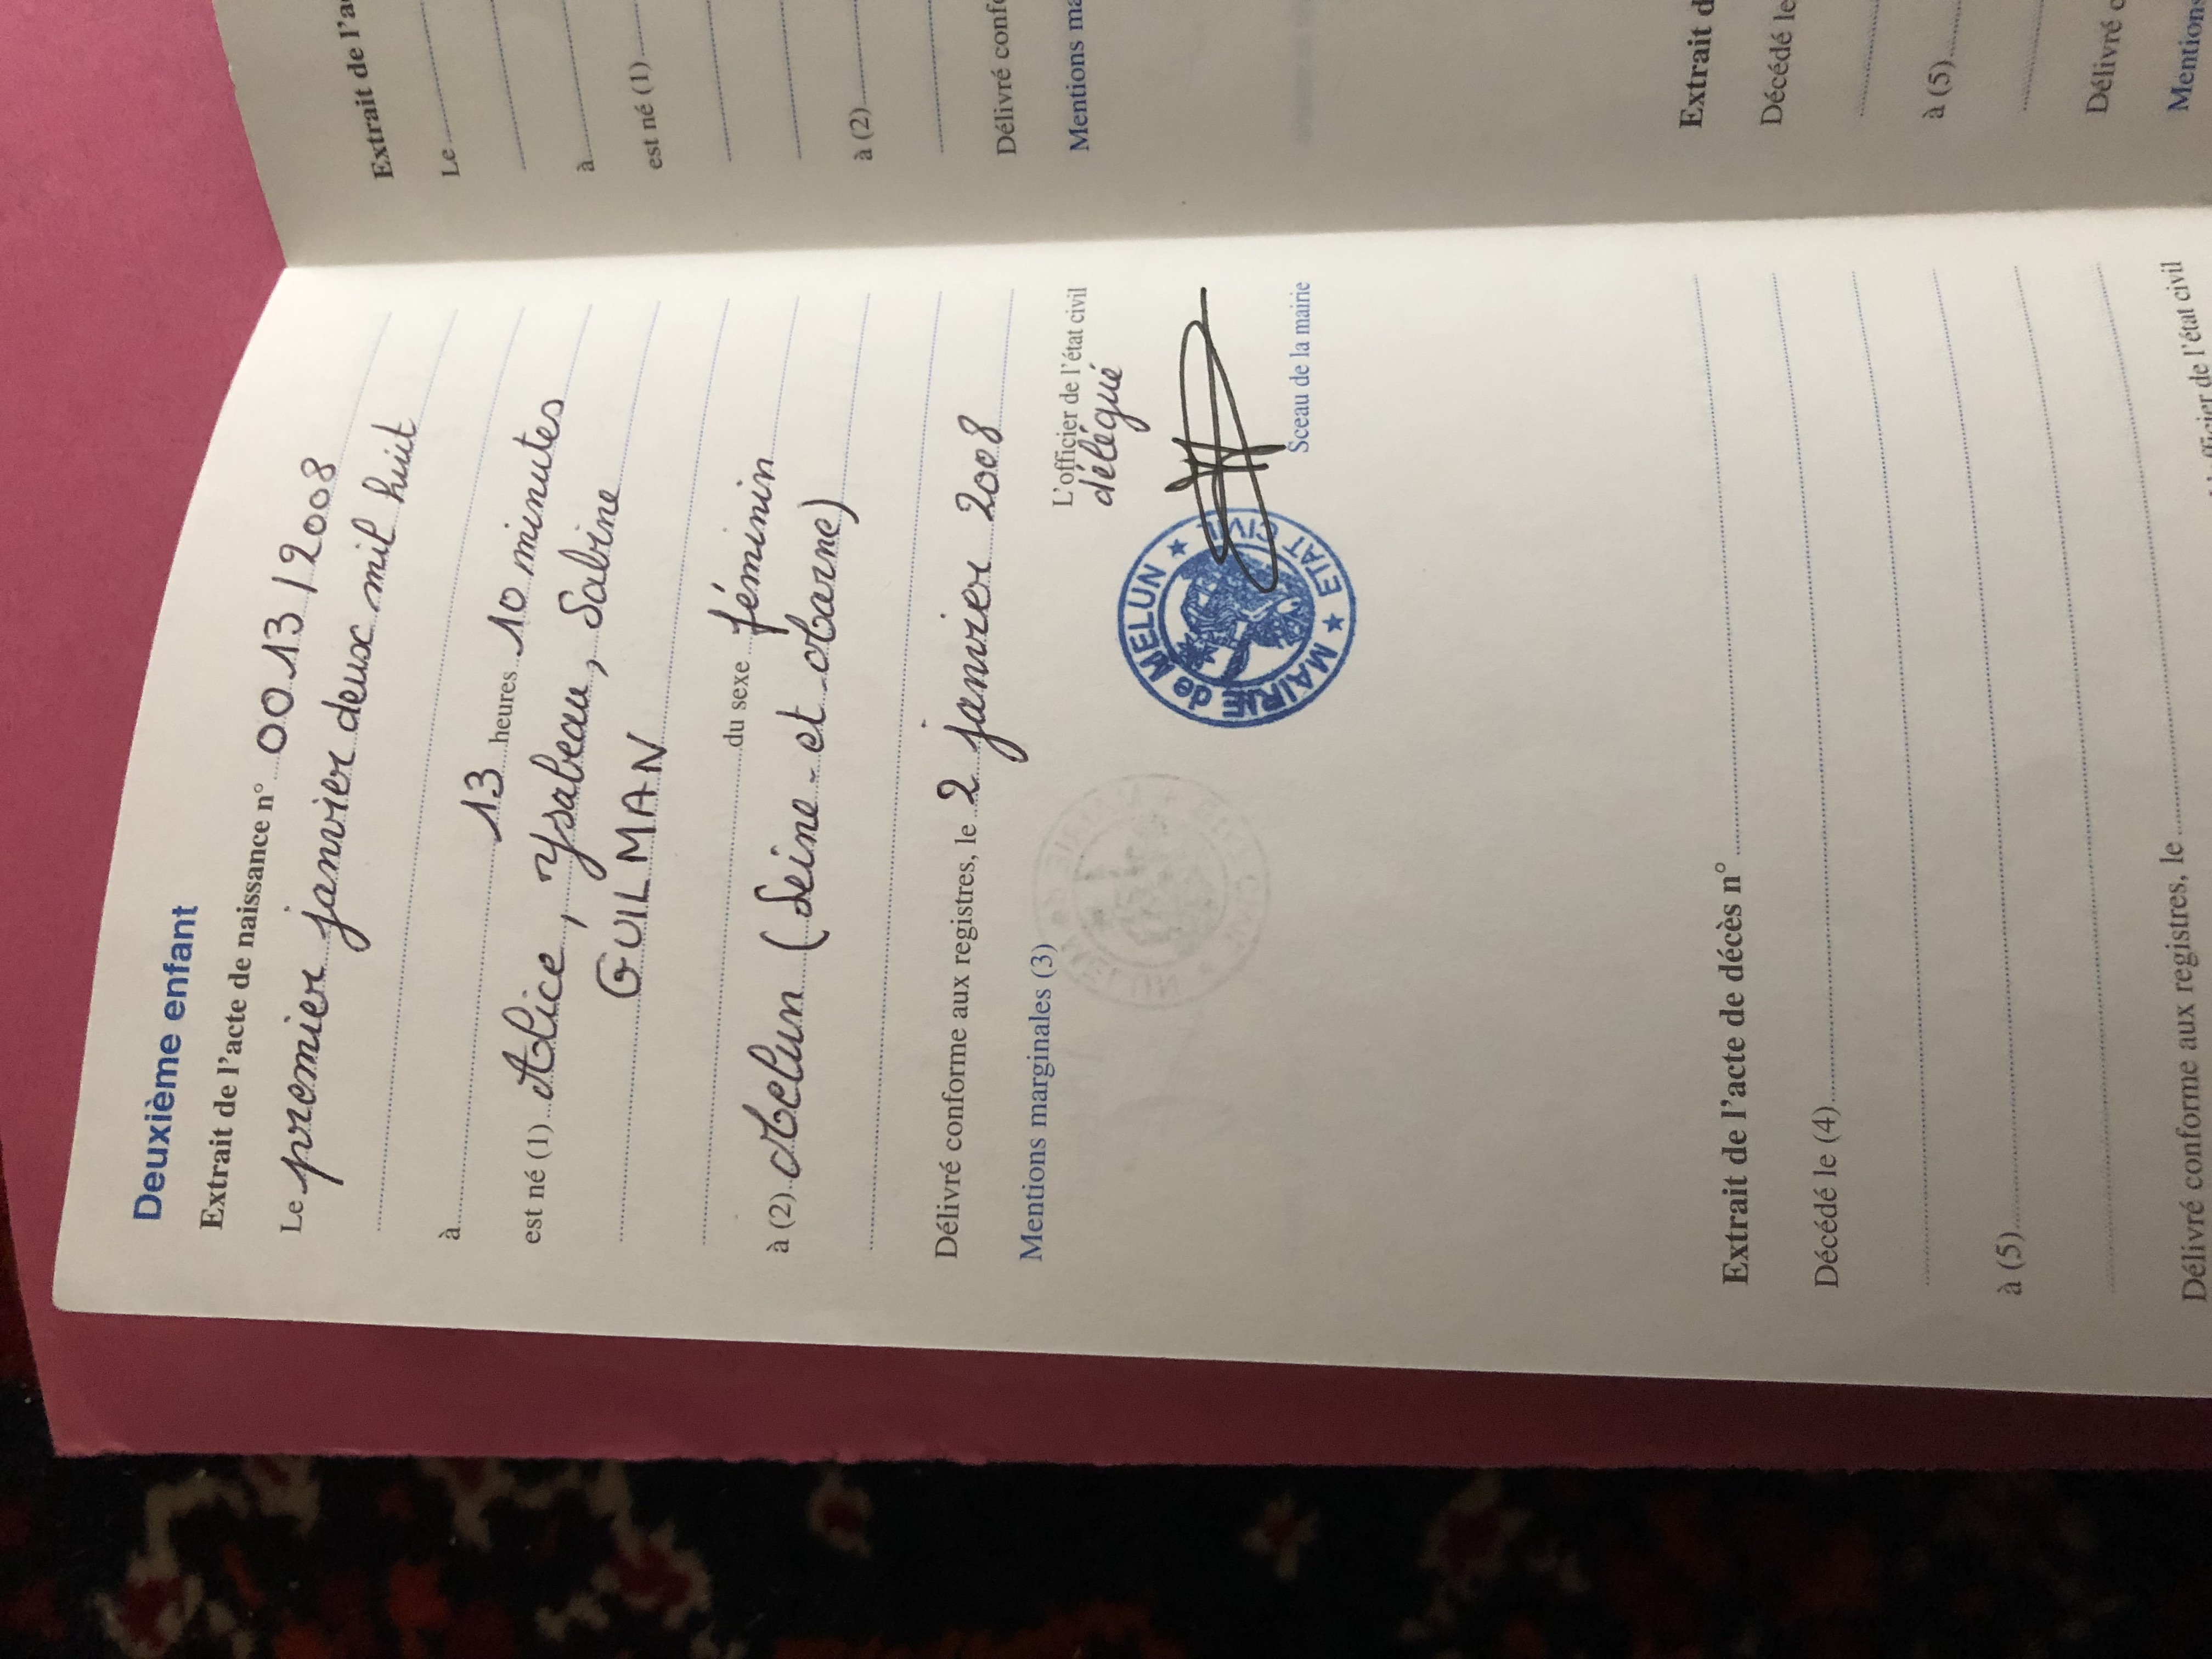 Deuxième enfant
Extrait de l'acte de naissance n° 0013/2008
Le premier janvier deux mil huit
à 13 heures 10 minutes
est né (1) Alice, Ysabeau, Sabine
GUILMAN
du sexe féminin
à (2) Melun (Seine-et-Marne)
Délivré conforme aux registres, le 2 janvier 2008
Mentions marginales (3)
L'officier de l'état civil
délégué
MAIRIE de MELUN ★ ETAT CIVIL ★
Sceau de la mairie
Extrait de l'acte de décès n°
Décédé le (4)
à (5)
Délivré conforme aux registres, le
officier de l'état civil
Extrait de l'a
Le
à
est né (1)
à (2)
Délivré conf
Mentions ma
Extrait d
Décédé le
à (5)
Délivré c
Mentions